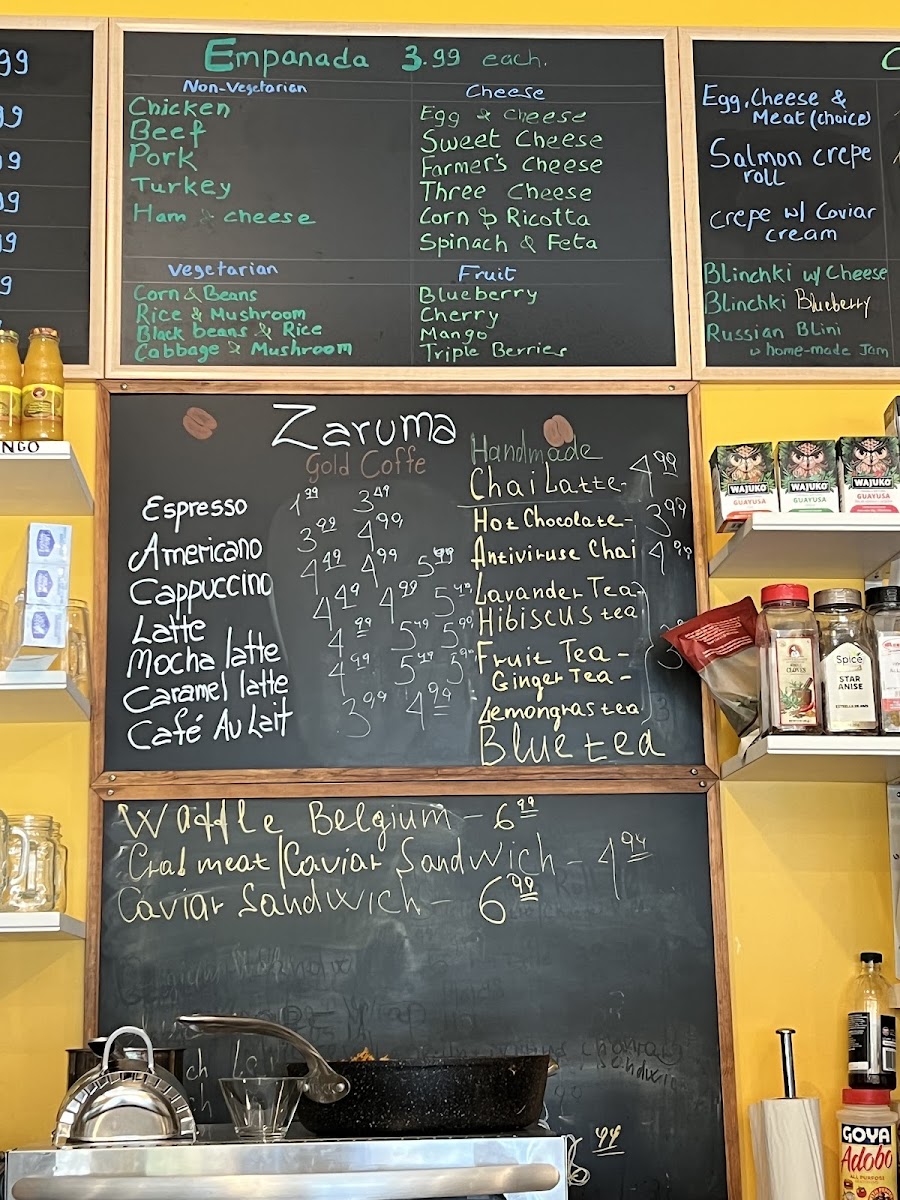 99
9
9
99
99
9
Empanada 3.99 each.
Non-Vegetarian
Chicken
Beef
Pork
Turkey
Ham & cheese
Cheese
Egg & cheese
Sweet Cheese
Farmer's Cheese
Three Cheese
Corn & Ricotta
Spinach & Feta
Vegetarian
Corn & Beans
Rice & Mushroom
Black beans & Rice
Cabbage & Mushroom
Fruit
Blueberry
Cherry
Mango
Triple Berries
Egg, Cheese &
Meat (choice)
Salmon crepe
roll
crepe w/ Caviar
cream
Blinchki w/ Cheese
Blinchki Blueberry
Russian Blini
home-made Jam
Zaruma
Gold Coffe
Espresso 1.99 3.49
Americano 3.99 4.99
Cappuccino 4.49 4.99 5.49
Latte 4.49 4.99
Mocha latte 4.99 5.49 5.99
Caramel latte 4.99 5.49
Café Au Lait 3.99 4.99
Handmade
Chai Latte - 4.99
Hot Chocolate - 3.99
Antiviruse Chai 4.99
Lavander Tea
Hibiscus tea
Fruit Tea -
Ginger Tea -
Lemongras tea
Blue tea
Waffle Belgium - 6.99
Crab meat/Caviar Sandwich - 4.94
Caviar Sandwich - 6.99
NGO
WAJUKO
GUAYUSA
WAJUKO
GUAYUSA
WAJUKO
GUAYUSA
Spice
STAR
ANISE
GOYA
Adobo
ALL PURPOSE